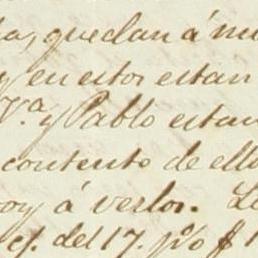 ha, quedan á mi
y en estos estan
V.ª y Pablo estan
contento de ello
voy á verlos. Le
cf. del 17. p.º $ 1